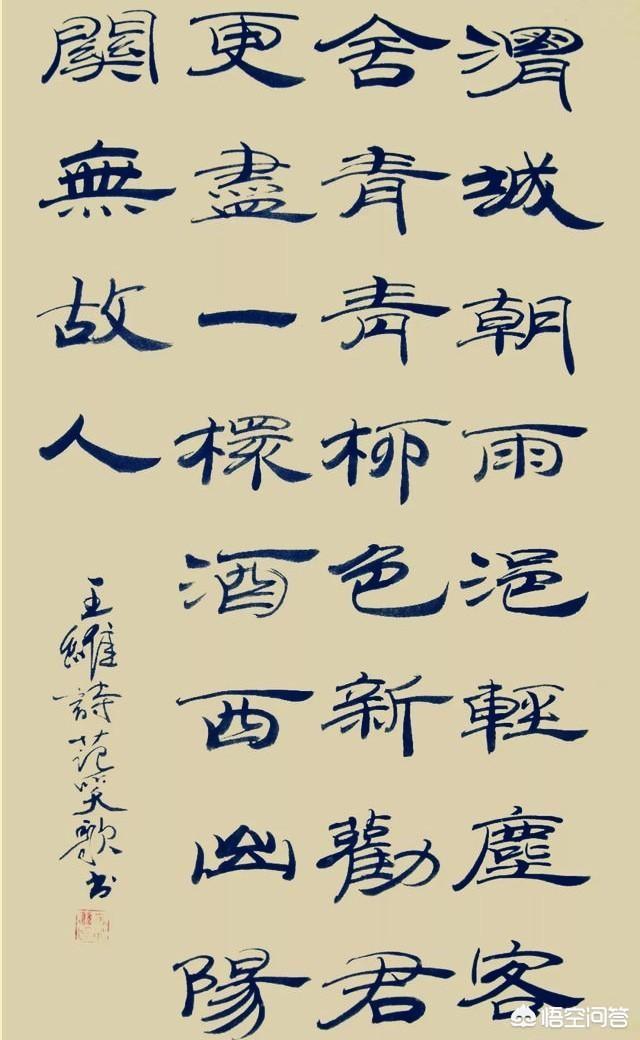 渭城朝雨浥輕塵客
舍青青柳色新勸君
更盡一杯酒西出陽
關無故人
王維詩范笑歌书
悟空问答